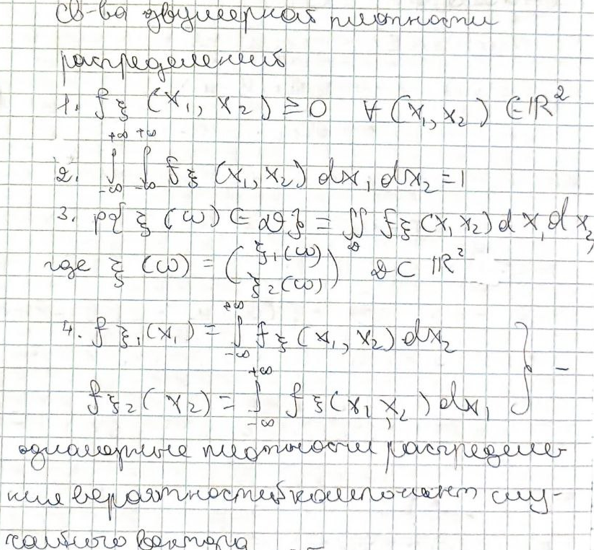 Св-ва двумерной плотности
распределения
1. fξ (x₁, x₂) ≥ 0 ∀ (x₁, x₂) ∈ ℝ²
2. ∫_{-∞}^{+∞} ∫_{-∞}^{+∞} fξ (x₁, x₂) dx₁ dx₂ = 1
3. p{ξ(ω) ∈ 𝒟} = ∬_𝒟 fξ (x₁ x₂) dx₁ dx₂
где ξ(ω) = (ξ₁(ω) ξ₂(ω)) 𝒟 ⊂ ℝ²
4. fξ₁(x₁) = ∫_{-∞}^{+∞} fξ (x₁, x₂) dx₂ } –
fξ₂(x₂) = ∫_{-∞}^{+∞} fξ (x₁, x₂) dx₁
одномерные плотности распределе-
ния вероятностей компонент слу-
чайного вектора